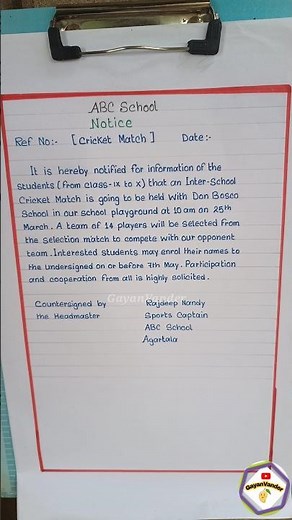 ABC School
Notice
Ref No:- [Cricket Match] Date:-
It is hereby notified for information of the
students (from class-IX to X) that an Inter-School
Cricket Match is going to be held with Don Bosco
School in our school playground at 10 am on 25th
March. A team of 14 players will be selected from
the selection match to compete with our opponent
team. Interested students may enrol their names to
the undersigned on or before 7th May. Participation
and cooperation from all is highly solicited.
GayanVander
Countersigned by Rajdeep Nandy
the Headmaster Sports Captain
ABC School
Agartala
GayanVander